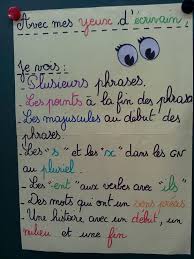 Avec mes yeux d'écrivain,
Je vois :
- Plusieurs phrases.
- Les points à la fin des phrases
- Les majuscules au début des
phrases
- Les "s" et les "x" dans les GN
au pluriel
- Les "ent" aux verbes avec "ils"
- Des mots qui ont un sens précis
- Une histoire avec un début, un
milieu et une fin